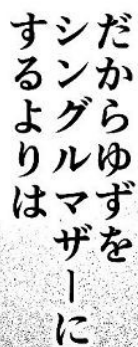 だからゆずを
シングルマザーに
するよりは